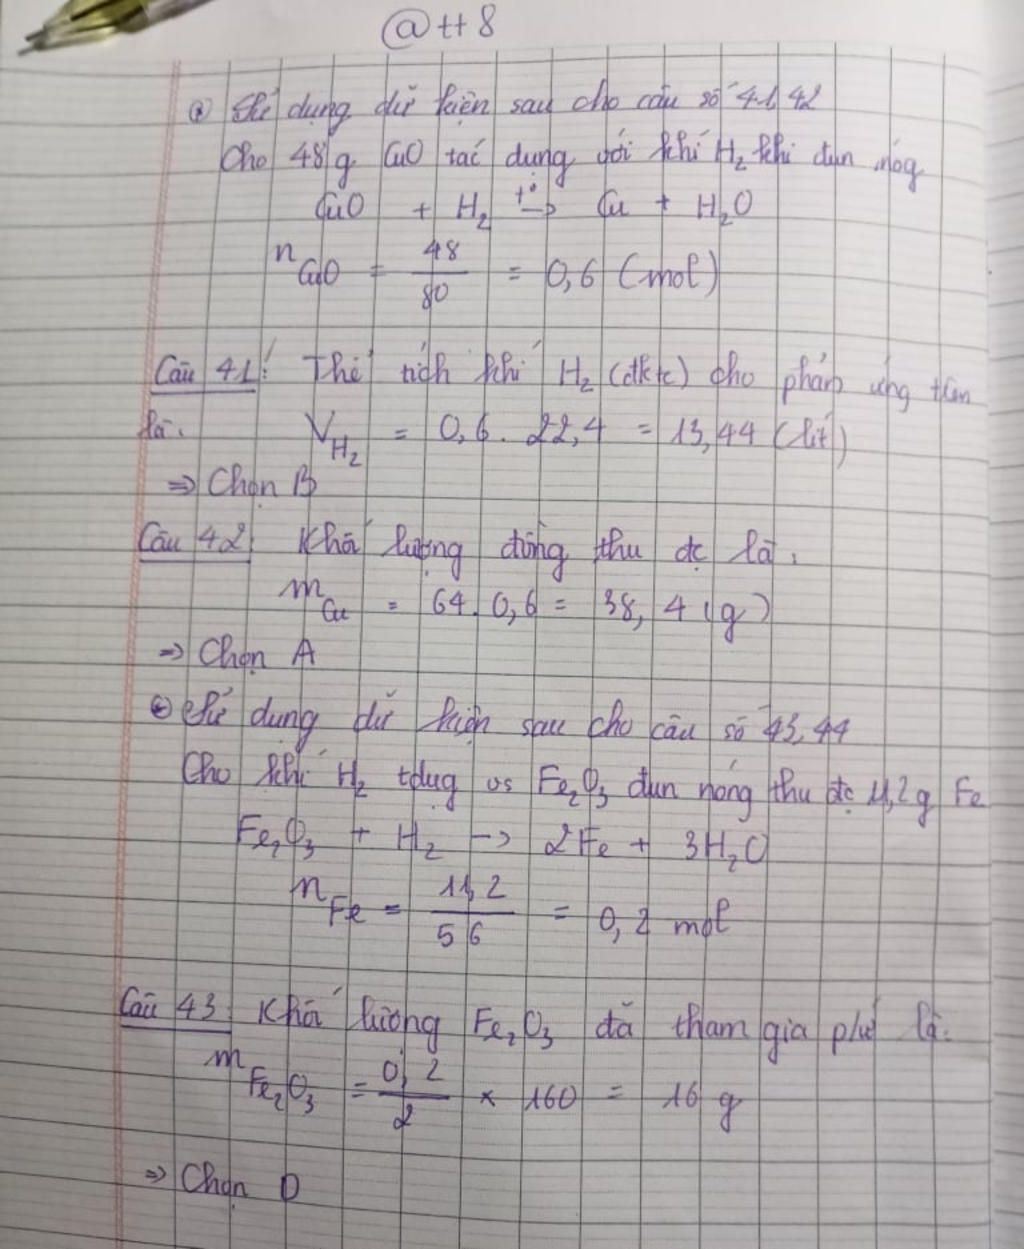 @tt8
Sử dụng dữ kiện sau cho câu số 41, 42
Cho 48g CuO tác dụng với khí H₂ khi đun nóg
CuO + H₂ t°→ Cu + H₂O
nCuO = 48/80 = 0,6 (mol)
Câu 41: Thể tích khí H₂ (đktc) cho phản ứng trên
là. V_H₂ = 0,6. 22,4 = 13,44 (lít)
⇒ Chọn B
Câu 42: Khối lượng đồng thu đc là.
mCu = 64. 0,6 = 38,4 (g)
⇒ Chọn A
Sử dụng dữ kiện sau cho câu số 43, 44
Cho khí H₂ tdụg vs Fe₂O₃ đun nóng thu đc 11,2g Fe
Fe₂O₃ + H₂ → 2Fe + 3H₂O
nFe = 11,2/56 = 0,2 mol
Câu 43: Khối lượng Fe₂O₃ đã tham gia pứ là.
mFe₂O₃ = 0,2/2 × 160 = 16 g
⇒ Chọn D